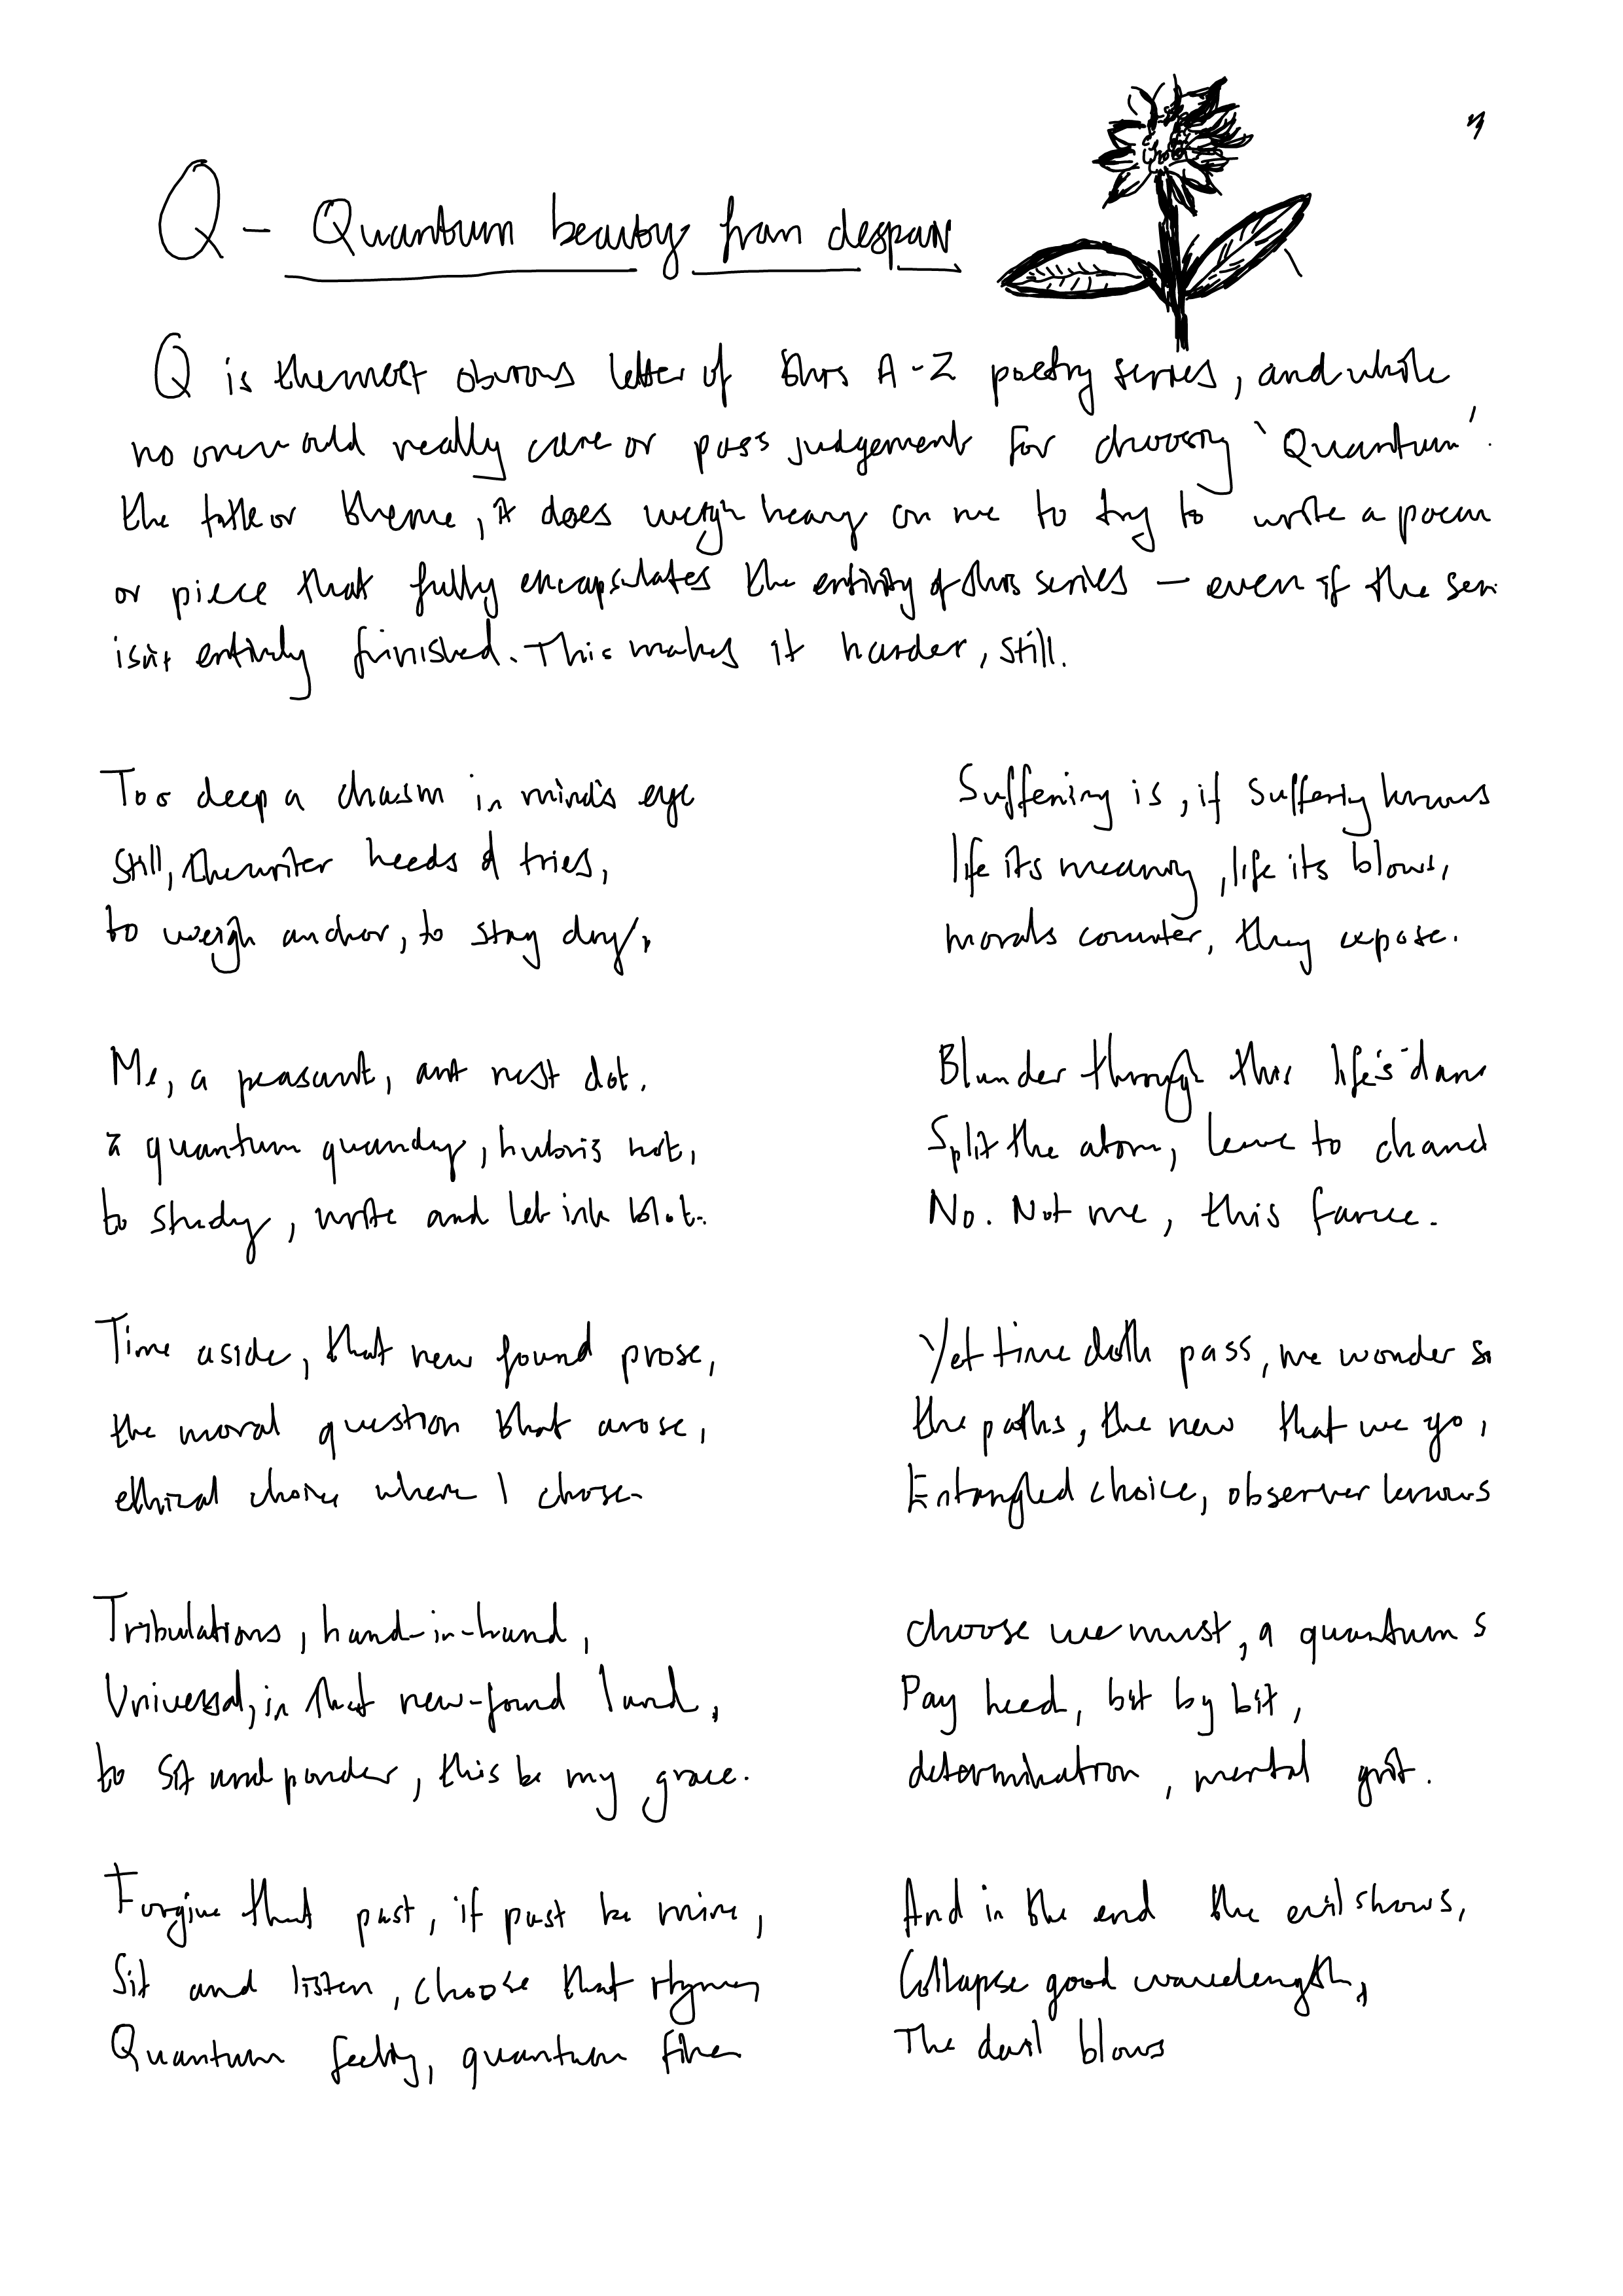 Q - Quantum beauty from despair
Q is the most obvious letter of this A-Z poetry series, and while
no one would really care or pass judgement for choosing 'Quantum'
the title or theme, it does weigh heavy on me to try to write a poem
or piece that fully encapsulates the entirity of this series - even if the seri
isn't entirely finished. This makes it harder, still.
Too deep a chasm in mind's eye
still, the writer heeds & tries,
to weigh anchor, to stay dry,
Me, a peasant, ant nest dot.
a quantum quandry, hubris not,
to study, write and let ink blot.
Time aside, that new found prose,
the moral question that arose,
ethical choice where I chose.
Tribulations, hand-in-hand,
Universal, in that new-found land,
to sit and ponder, this be my grace.
Forgive that past, if past be mine,
Sit and listen, choose that rhyme,
Quantum feeling, quantum fine
Suffering is, if suffering knows
life its meaning, life its blows,
morals counter, they expose.
Blunder through this life's dan
Split the atom, leave to chanc
No. Not me, this farce.
Yet time doth pass, we wonder so
the paths, the new that we go,
Entangled choice, observer knows
choose we must, a quantum s
Pay heed, bit by bit,
determination, mental grit.
And in the end the evil shows,
Collapse good wavelength,
The devil blows